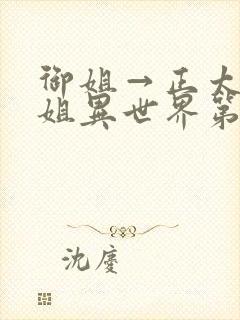 御姐→正太
姐異世界第
沈慶